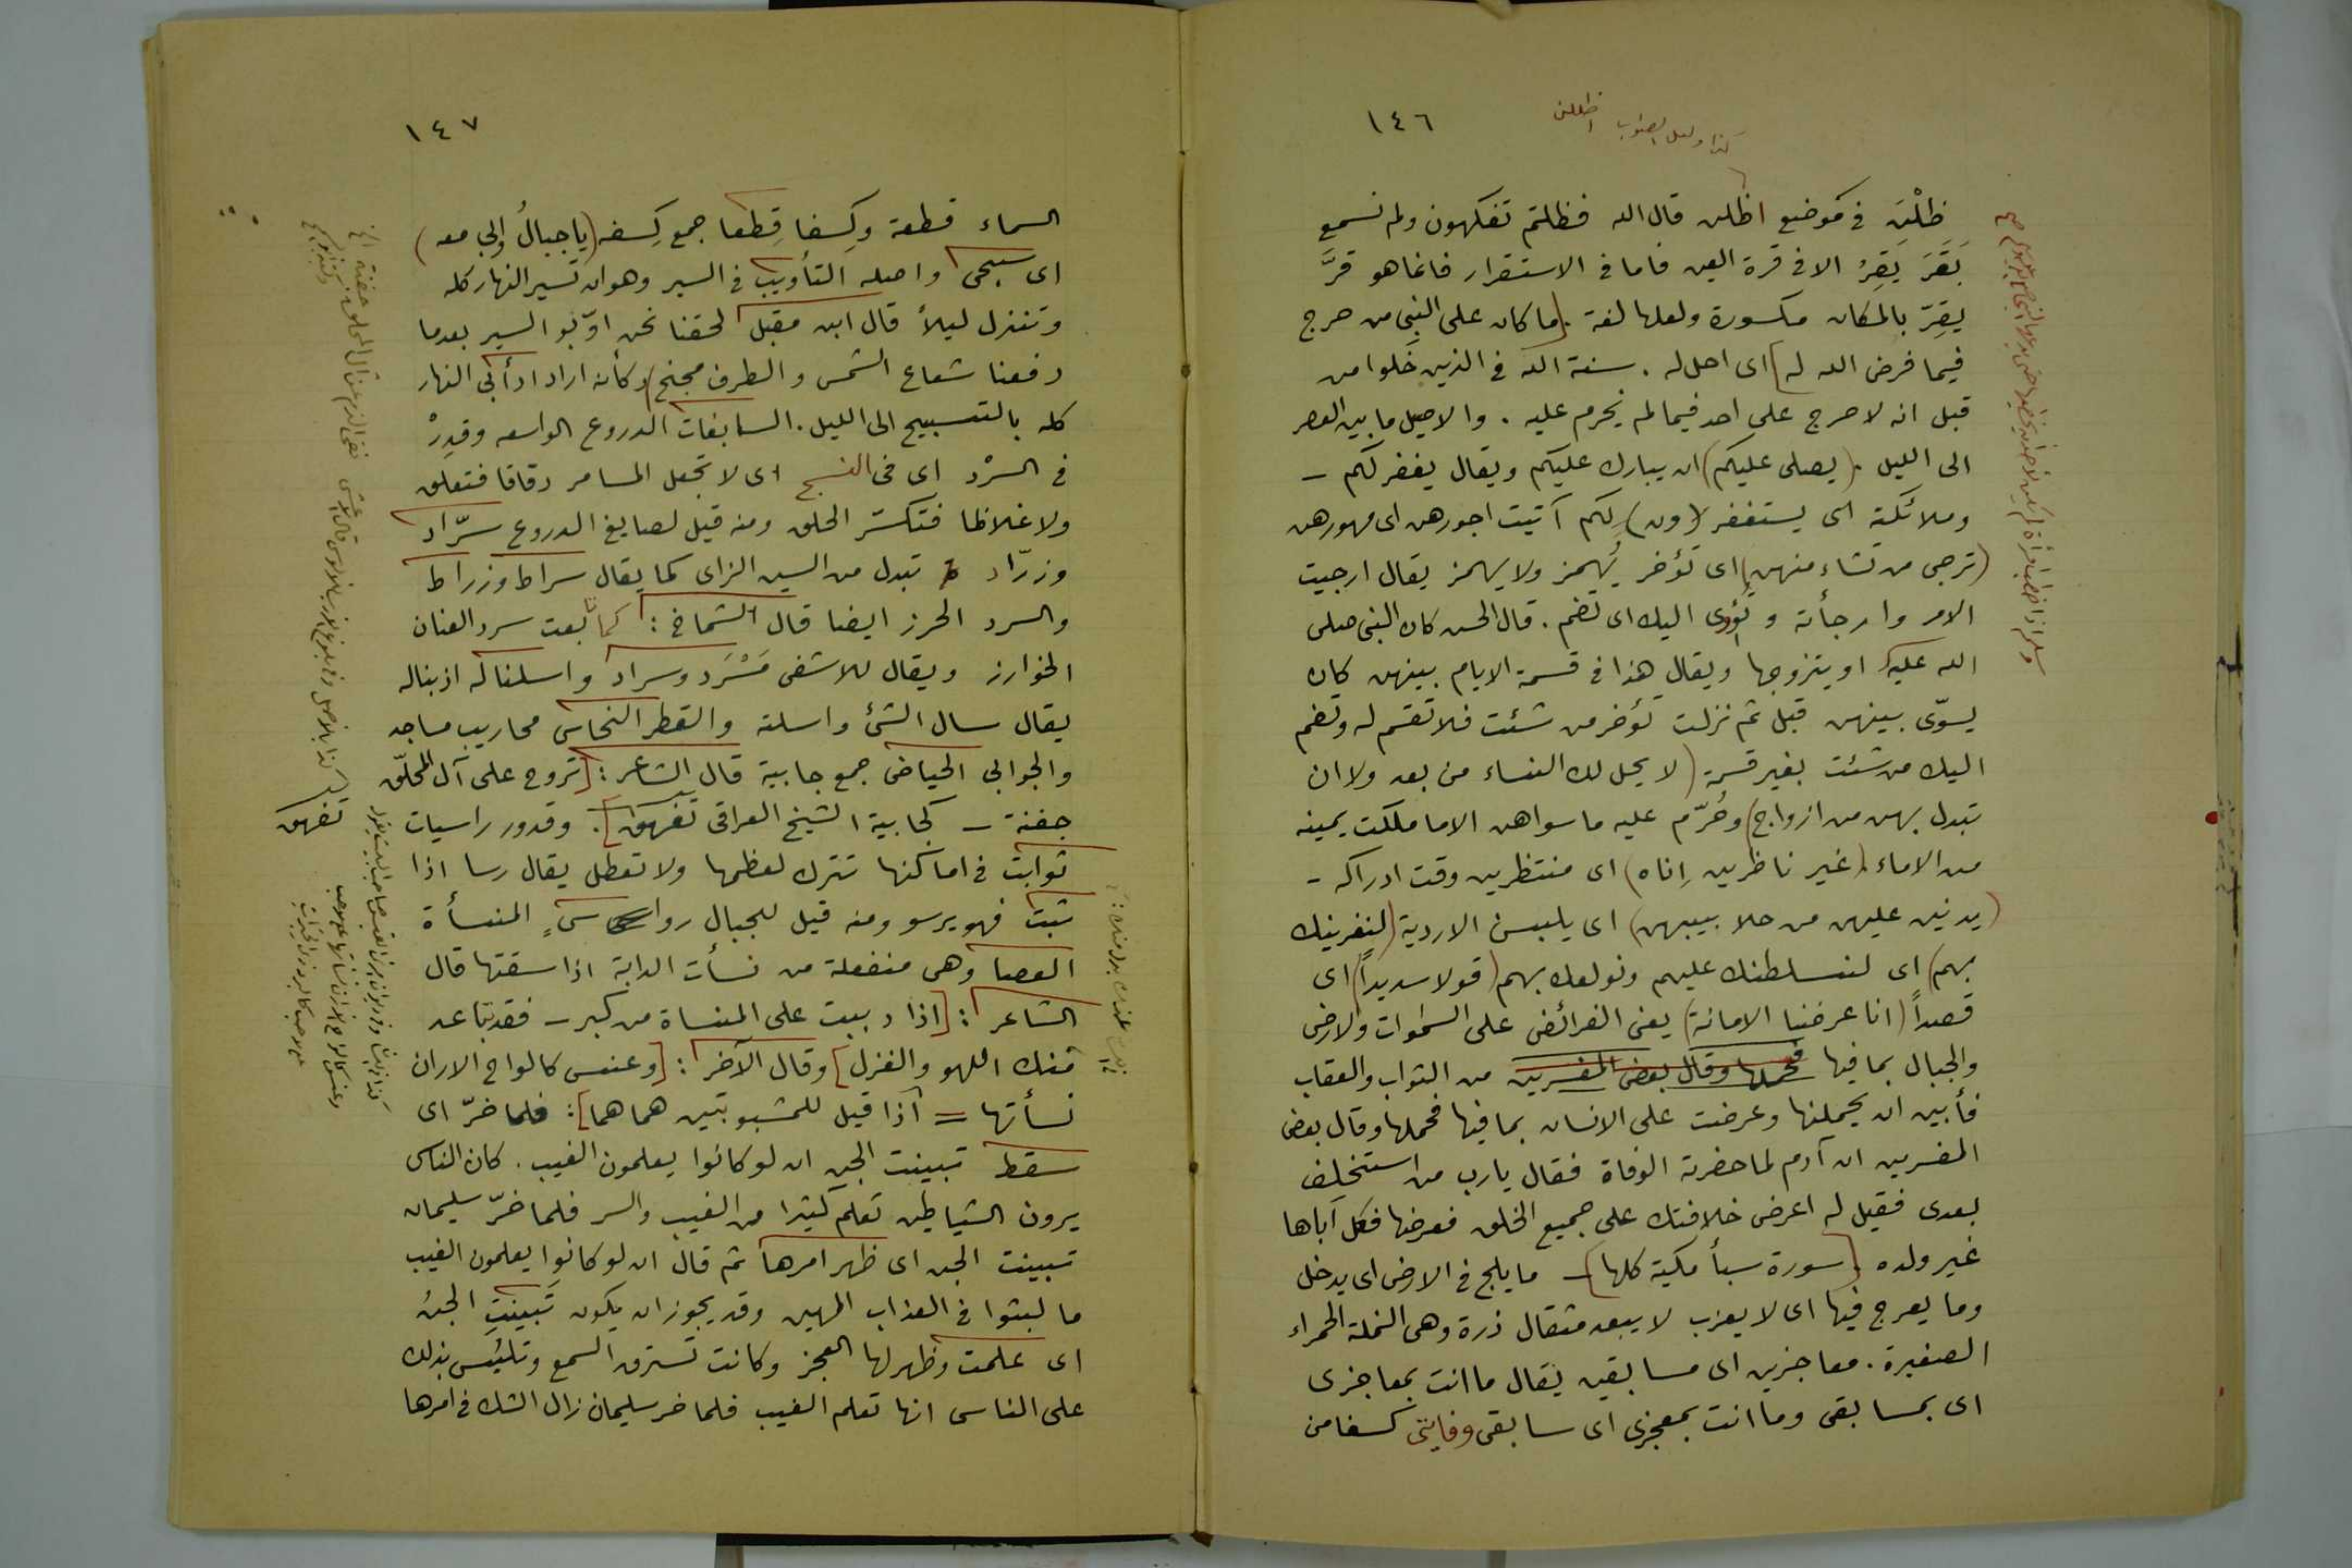 ١٤٦
كذا ولعل الصواب اظللن
ظِلْنَ في موضع اظللن قال الله فظلتم تفكهون ولم نسمع
بَقَرَ يَقِرُ الا في قرة العين فاما في الاستقرار فانما هو قرَّ
يقِرّ بالمكان مكسورة ولعلها لغة. [ما كان على النبي من حرج
فيما فرض الله له] اى احل له. سنة الله في الذين خلوا من
قبل انه لا حرج على احد فيما لم يحرم عليه. والاصيل ما بين العصر
الى الليل. (يصلى عليكم) ان يبارك عليكم ويقال يغفر لكم -
وملائكته اى يستغفر (ون) لكم آتيت اجورهن اى مهورهن
(ترجى من تشاء منهن) اى تؤخر يُهمز ولا يهمز يقال ارجيت
الامر وارجأته وتؤوى اليك اى تضم. قال الحسن كان النبي صلى
الله عليه او يتزوجها ويقال هذا في قسمة الايام بينهن كان
يسوّى بينهن قبل ثم نزلت تؤخر من شئت فلا تقسم له وتضم
اليك من شئت بغير قسمة (لا يحل لك النساء من بعد ولا ان
تبدل بهن من ازواج) وحُرّم عليه ما سواهن الا ما ملكت يمينه
من الاماء (غير ناظرين إناه) اى منتظرين وقت ادراكه -
(يدنين عليهن من جلابيبهن) اى يلبسن الاردية (لنغرينك
بهم) اى لنسلطنك عليهم ونولعك بهم (قولا سديداً) اى
قصداً (انا عرضنا الامانة) يعنى الفرائض على السموات والارض
والجبال بما فيها فحملها وقال بعض المفسرين من الثواب والعقاب
فأبين ان يحملنها وعرضت على الانسان بما فيها فحملها وقال بعض
المفسرين ان آدم لما حضرته الوفاة فقال يارب من استخلِف
بعدى فقيل له اعرض خلافتك على جميع الخلق فعرضها فكل اباها
غير ولده [سورة سبأ مكية كلها] - ما يلج في الارض اى يدخل
وما يعرج فيها اى لا يعزب لا يبعد مثقال ذرة وهى النملة الحمراء
الصغيرة. معاجزين اى مسابقين يقال ما انت بمعاجزى
اى بمسابقى وما انت بمعجزى اى سابقى وفايتى كسفا من
١٤٧
السماء قطعة وكِسفا قِطعا جمع كِسفه (يا جبالُ اوبي معه)
اى سبحى واصله التأويب في السير وهو ان تسير النهار كله
وتنزل ليلاً قال ابن مقبل لحقنا نحن اوّبو السير بعدما
دفعنا شعاع الشمس والطرف مجنح) وكأنه اراد ادأبي النهار
كله بالتسبيح الى الليل. السابغات الدروع الواسعه وقدِرْ
في السرْد اى في النسج اى لا تجعل المسامر دقاقا فتعلق
ولا غلاظا فتكسّر الحلق ومنه قيل لصايغ الدروع سرّاد
وزرّاد تبدل من السين الزاى كما يقال سراط وزراط
والسرد الخرز ايضا قال الشماخ: كما تابعت سرد العنان
الخوارز ويقال للاشفى مَسْرَد وسراد واسلنا له اذبنا له
يقال سال الشئ واسلته والقطر النحاس محاريب مساجد
والجوابي الحياض جمع جابية قال الشاعر: [تروح على آل المحلّق
جفنة - كجابية الشيخ العراقى تفهق]. وقدور راسيات
ثوابت في اماكنها تترك لعظمها ولا تعطل يقال رسا اذا
ثبت فهو يرسو ومنه قيل للجبال رواسىٍ المنسأة
العصا وهى منفعلة من نسأت الدابة اذا سقتها قال
الشاعر: [اذا دببت على المنساة من كبر - فقد تباعد
منك اللهو والغزل] وقال الآخر: [وعنس كالواح الاران
نسأتها = اذا قيل للمشبوبتين هما هما]: فلما خرّ اى
سقط تبينت الجن ان لو كانوا يعلمون الغيب. كان الناس
يرون الشياطين تعلم كثيرا من الغيب والسر فلما خرّ سليمان
تبينت الجن اى ظهر امرها ثم قال ان لو كانوا يعلمون الغيب
ما لبثوا في العذاب المهين وقد يجوز ان يكون تَبينتِ الجنُ
اى علمت وظهر لها العجز وكانت تسترق السمع وتلبّس بذلك
على الناس انها تعلم الغيب فلما خر سليمان زال الشك في امرها
تفهق